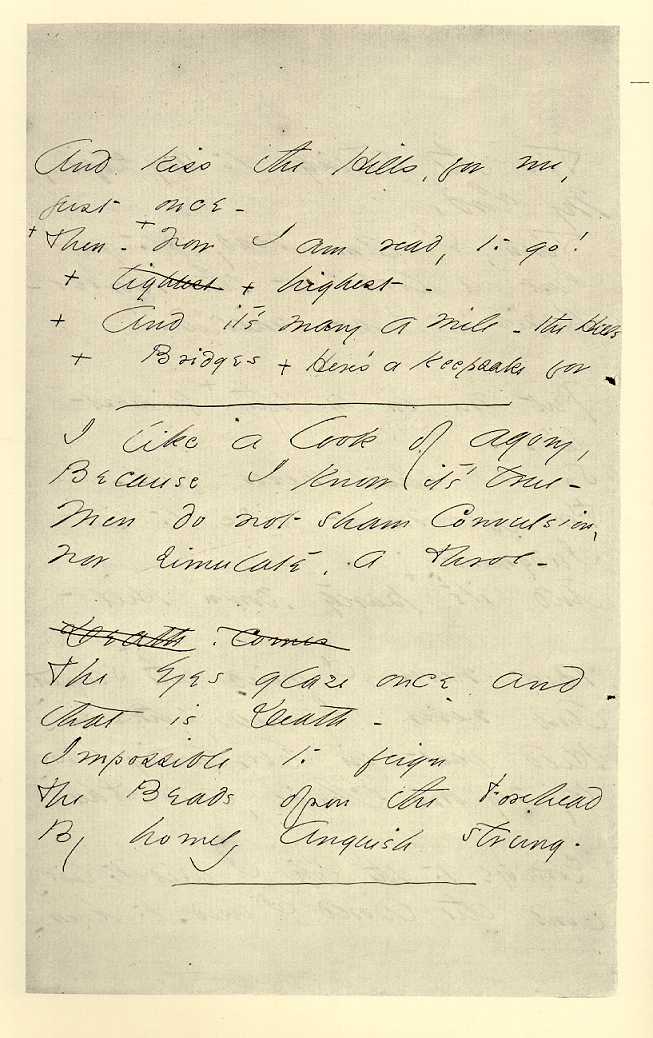 And kiss the Hills, for me,
just once -
+ Then - + now I am ready to go!
+ tightest + highest -
+ And it's many a mile - the Hills
+ Bridges + Here's a keepsake for
I like a look of Agony,
Because I know it's true -
Men do not sham Convulsion,
Nor simulate, a Throe -
Death - comes
The Eyes glaze once and
that is Death -
Impossible to feign
The Beads opon the Forehead
By homely Anguish strung.